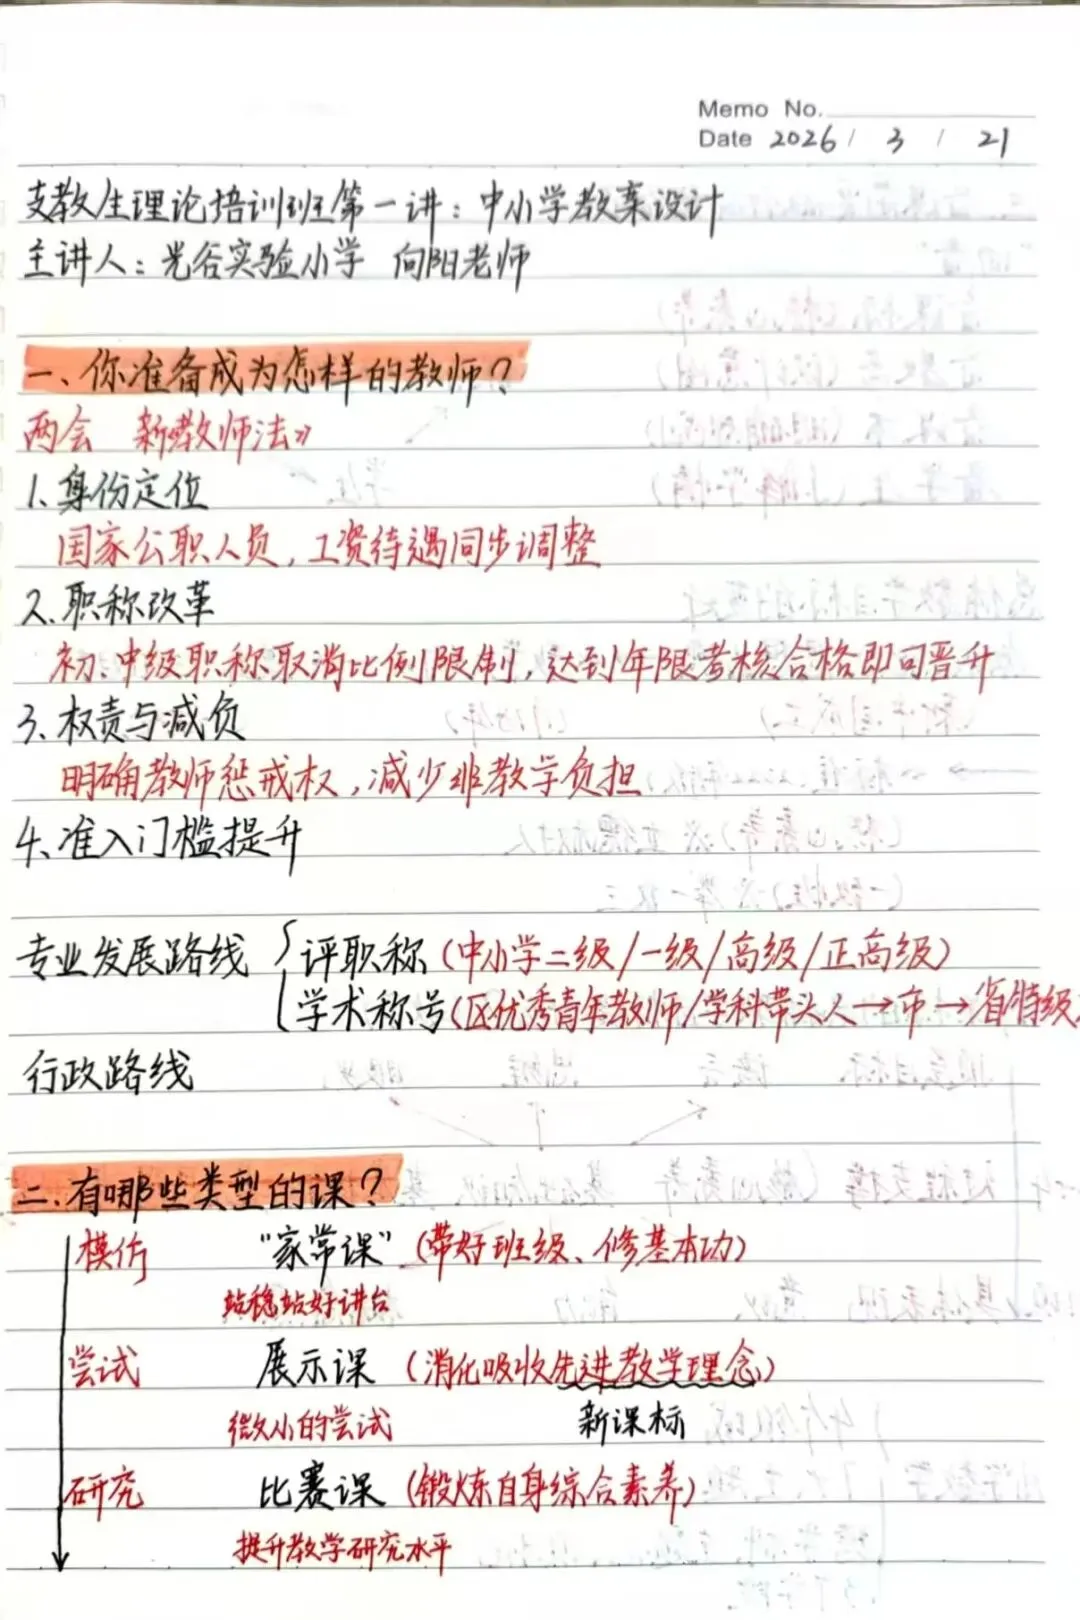 Memo No.
Date 2026 / 3 / 21
支教生理论培训班第一讲：中小学教案设计
主讲人：光谷实验小学 向阳老师
一、你准备成为怎样的教师？
两会 新教师法》
1.身份定位
国家公职人员，工资待遇同步调整
2.职称改革
初、中级职称取消比例限制，达到年限考核合格即可晋升
3.权责与减负
明确教师惩戒权，减少非教学负担
4.准入门槛提升
专业发展路线 评职称（中小学二级/一级/高级/正高级）
学术称号（区优秀青年教师/学科带头人→市→省特级
行政路线
二.有哪些类型的课？
模仿 “家常课”（带好班级、修基本功）
站稳站好讲台
尝试 展示课（消化吸收先进教学理念）
微小的尝试 新课标
研究 比赛课（锻炼自身综合素养）
提升教学研究水平